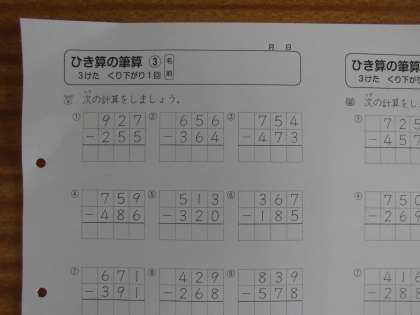 月 日
ひき算の筆算 ③ 名前
3けた くり下がり1回
次の計算をしましょう。
① 927 ② 656 ③ 754
－255 －364 －473
④ 759 ⑤ 513 ⑥ 367
－486 －320 －185
⑦ 671 ⑧ 429 ⑨ 839
－391 －268 －578
ひき算の筆算
3けた くり下がり1回
次の計算をし
① 725
－457
④ 750
－269
⑦ 416
－288